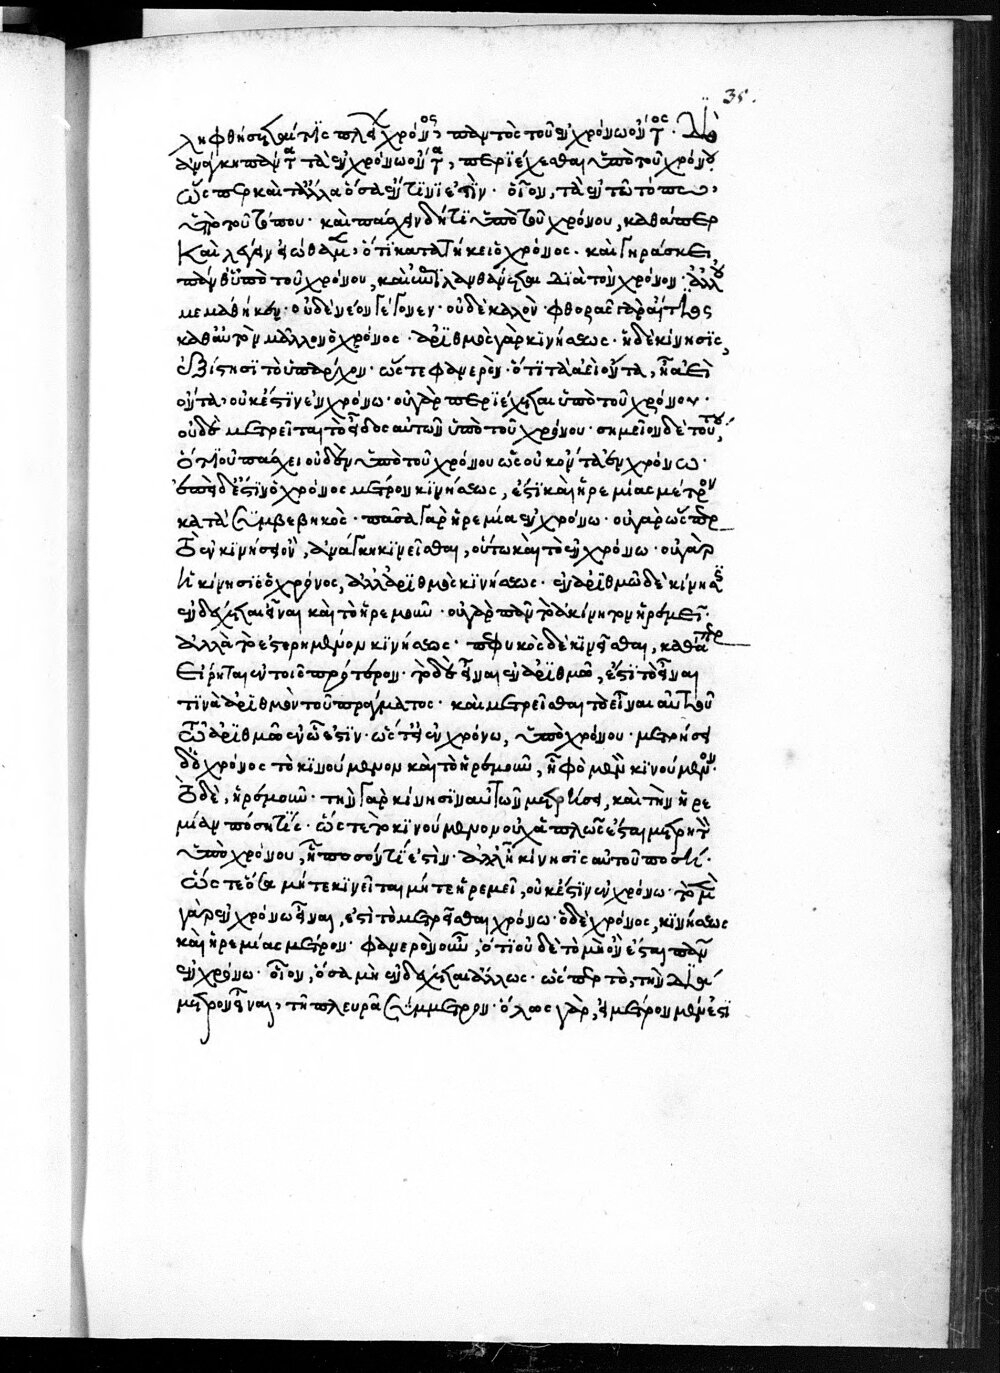 35.
ληφθήσεταί τις πλείων χρόνος παντὸς τοῦ ἐν χρόνω ὄντος. Διὸ
ἀνάγκη πάντα τὰ ἐν χρόνω ὄντα, περιέχεσθαι ὑπὸ τοῦ χρόνου.
ὥσπερ καὶ τἄλλα ὅσα ἔν τινί ἐστιν. οἷον, τὰ ἐν τῶ τόπω,
ὑπὸ τοῦ τόπου. καὶ πάσχειν δή τι ὑπὸ τοῦ χρόνου, καθάπερ
καὶ λέγειν εἰώθαμεν, ὅτι κατατήκει ὁ χρόνος. καὶ γηράσκει
πάνθ' ὑπὸ τοῦ χρόνου, καὶ ἐπιλανθάνεται διὰ τὸν χρόνον. ἀλλ' οὐ
μεμάθηκεν. οὐδὲ νέον γέγονεν. οὐδὲ καλὸν. φθορᾶς γὰρ αἴτιος
καθ' αὑτὸν μᾶλλον ὁ χρόνος. ἀριθμὸς γὰρ κινήσεως. ἡ δὲ κίνησις,
ἐξίστησι τὸ ὑπάρχον. ὥστε φανερὸν. ὅτι τὰ αἰεὶ ὄντα, ἧ αἰεὶ
ὄντα, οὐκ ἔστιν ἐν χρόνω. οὐ γὰρ περιέχεται ὑπὸ τοῦ χρόνου.
οὐδὲ μετρεῖται τὸ εἶδος αὐτῶν ὑπὸ τοῦ χρόνου. σημεῖον δὲ τούτου,
ὅτι οὐ πάσχει οὐδὲν ὑπὸ τοῦ χρόνου ὡς οὐκ ὄντα ἐν χρόνω.
ἐπεὶ δ' ἐστὶν ὁ χρόνος μέτρον κινήσεως, ἔσται καὶ ἠρεμίας μέτρον
κατὰ συμβεβηκὸς. πᾶσα γὰρ ἠρεμία ἐν χρόνω. οὐ γὰρ ὥσπερ
τὸ ἐν κινήσει ὂν, ἀνάγκη κινεῖσθαι, οὕτω καὶ τὸ ἐν χρόνω. οὐ γὰρ
ἡ κίνησις ὁ χρόνος, ἀλλ' ἀριθμὸς κινήσεως. ἐν ἀριθμῶ δὲ κινήσεως
ἐνδέχεται εἶναι καὶ τὸ ἠρεμοῦν. οὐ γὰρ πᾶν τὸ ἀκίνητον ἠρεμεῖ.
ἀλλὰ τὸ ἐστερημένον κινήσεως. πεφυκὸς δὲ κινεῖσθαι, καθάπερ
εἴρηται ἐν τοῖς πρότερον. τὸ δὲ εἶναι ἐν ἀριθμῶ, ἐστὶ τὸ εἶναι
τινὰ ἀριθμὸν τοῦ πράγματος. καὶ μετρεῖσθαι τὸ εἶναι αὐτοῦ
τῶ ἀριθμῶ ἐν ὧ ἐστιν. ὥστ' εἰ ἐν χρόνω, ὑπὸ χρόνου. μετρήσει
δ' ὁ χρόνος τὸ κινούμενον καὶ τὸ ἠρεμοῦν, ἧ τὸ μὲν κινούμενον.
τὸ δὲ, ἠρεμοῦν. τὴν γὰρ κίνησιν αὐτῶν μετρήσει, καὶ τὴν ἠρε
μίαν πόση τίς. ὥστε τὸ κινούμενον οὐχ ἁπλῶς ἔσται μετρητὸν
ὑπὸ χρόνου, ἧ ποσόν τί ἐστιν. ἀλλ' ἧ κίνησις αὐτοῦ ποσή.
ὥστε ὅσα μήτε κινεῖται μήτε ἠρεμεῖ, οὐκ ἔστιν ἐν χρόνω. τὸ μὲν
γὰρ ἐν χρόνω εἶναι, ἐστὶ τὸ μετρεῖσθαι χρόνω. ὁ δὲ χρόνος, κινήσεως
καὶ ἠρεμίας μέτρον. φανερὸν οὖν, ὅτι οὐδὲ τὸ μὴ ὂν ἔσται πᾶν
ἐν χρόνω. οἷον, ὅσα μὴ ἐνδέχεται ἄλλως. ὥσπερ τὸ, τὴν διά
μετρον εἶναι, τῆ πλευρᾶ σύμμετρον. ὅλως γὰρ, εἰ μέτρον μέν ἐστι